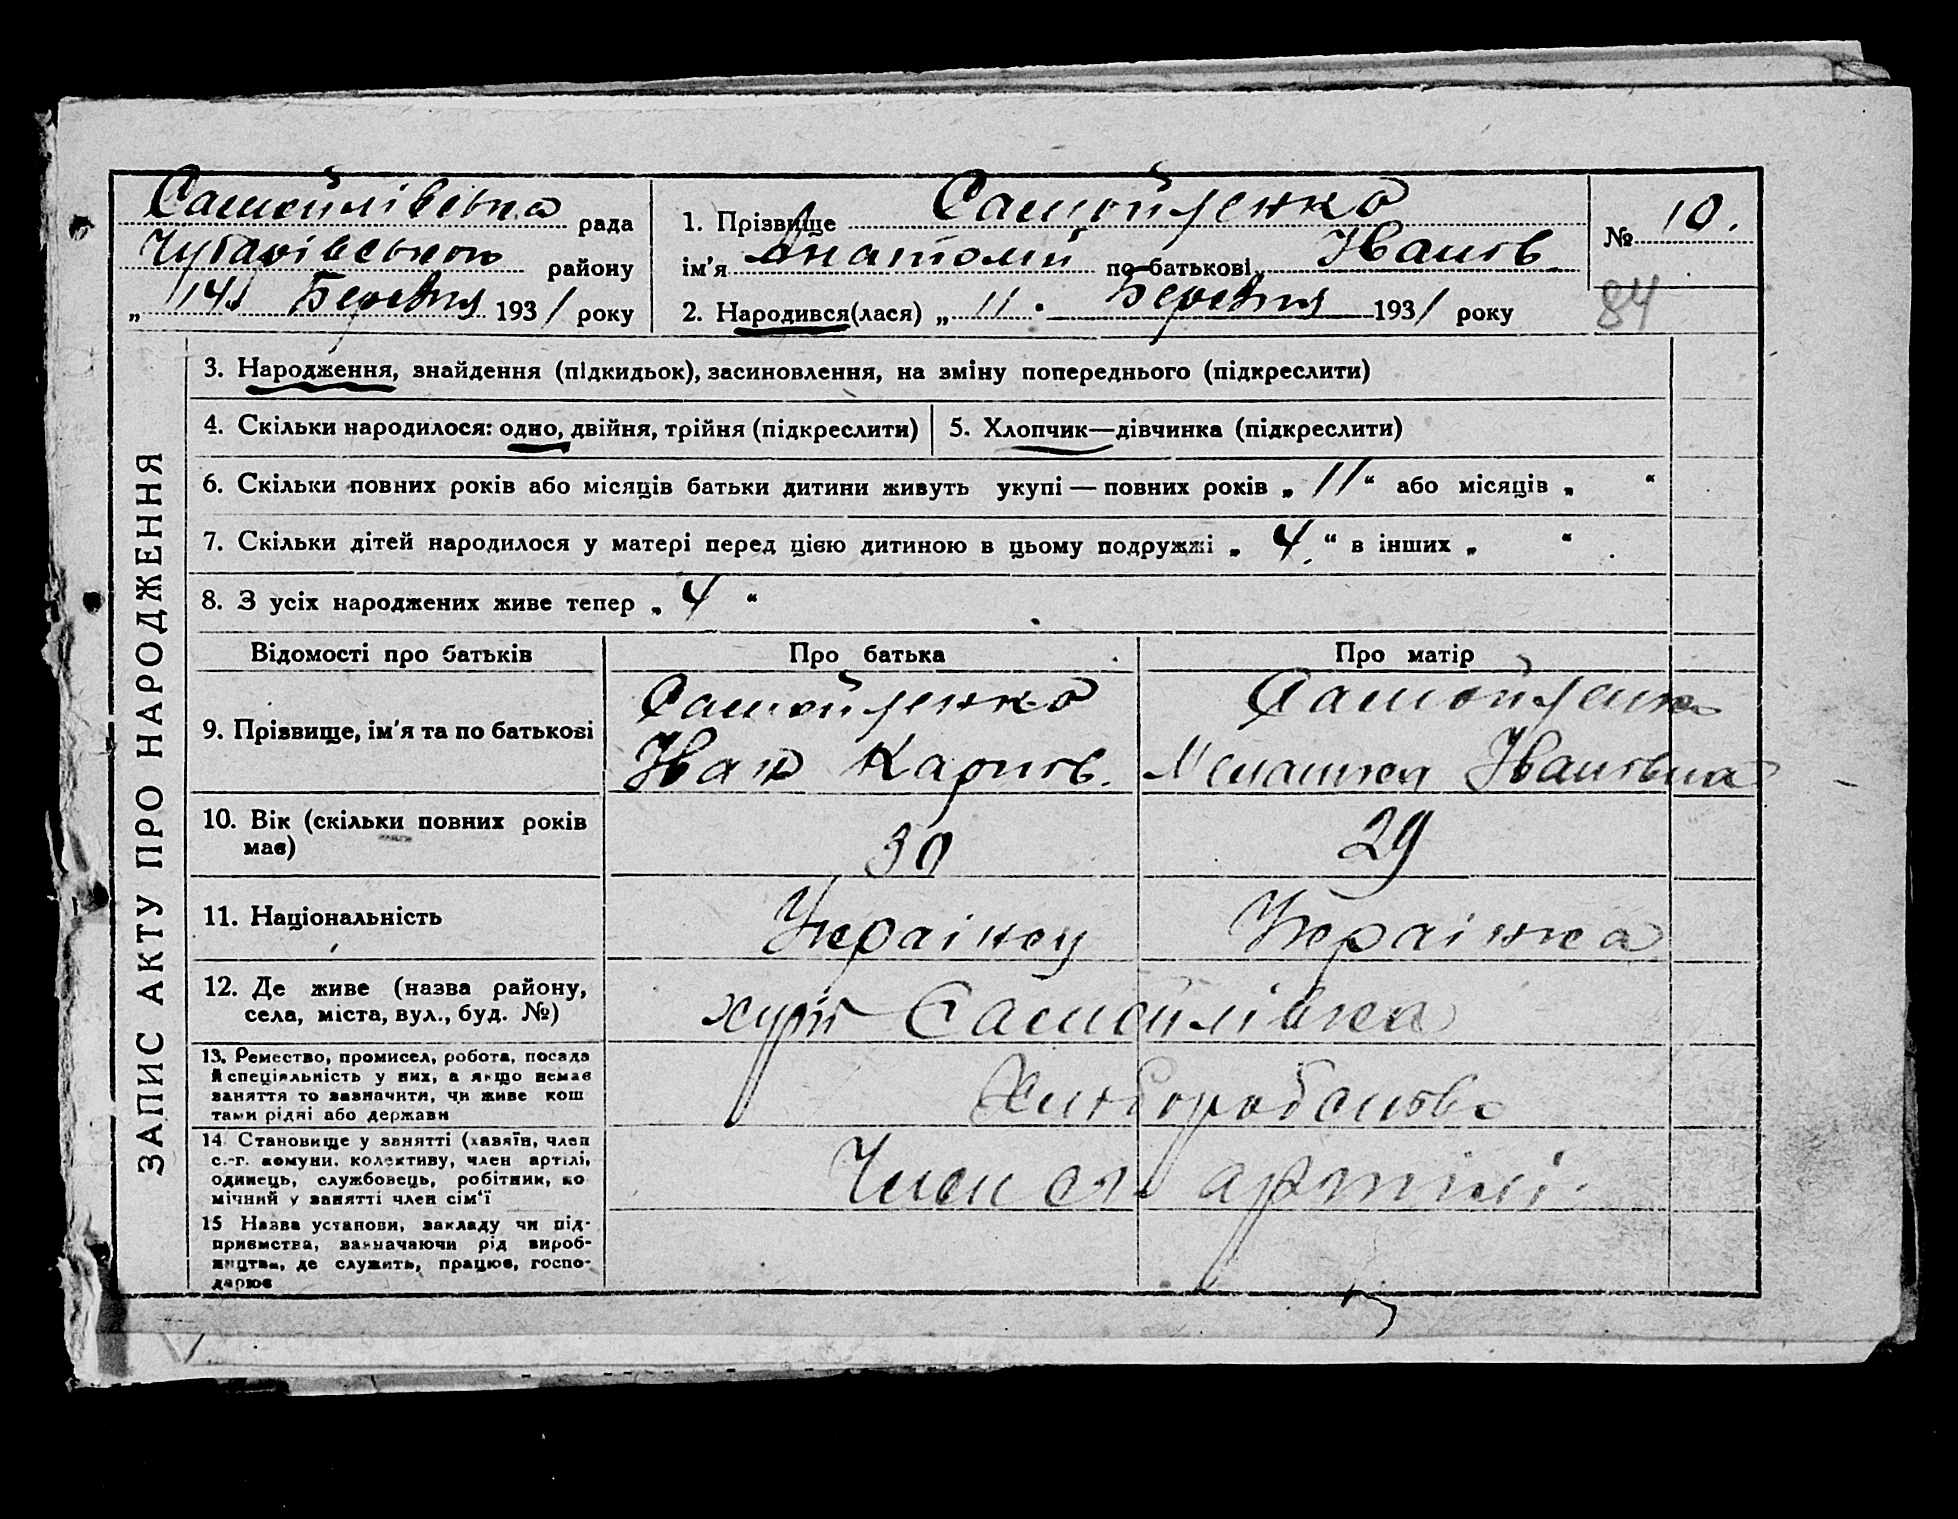 Самойлівська рада
Чубарівського району
„ 14 " Березня 1931 року
1. Прізвище Самойленко
ім'я Анатолій по батькові Іванов.
2. Народився(лася) „ 11 " Березня 1931 року
№ 10.
84
ЗАПИС АКТУ ПРО НАРОДЖЕННЯ
3. Народження, знайдення (підкидьок), засиновлення, на зміну попереднього (підкреслити)
4. Скільки народилося: одно, двійня, трійня (підкреслити)
5. Хлопчик—дівчинка (підкреслити)
6. Скільки повних років або місяців батьки дитини живуть укупі — повних років „ 11 “ або місяців „ “
7. Скільки дітей народилося у матері перед цією дитиною в цьому подружжі „ 4 “ в інших „ “
8. З усіх народжених живе тепер „ 4 “
Відомості про батьків
Про батька
Про матір
9. Прізвище, ім'я та по батькові
Самойленко
Іван Карпов.
Самойленко
Меланкя Івановна
10. Вік (скільки повних років
має)
30
29
11. Національність
Українец
Українка
12. Де живе (назва району,
села, міста, вул., буд. №)
хутір Самойлівка
13. Ремество, промисел, робота, посада
й спеціяльність у них, а якщо немає
заняття то зазначити, чи живе кош
тами рідні або держави
Хлібороб
14. Становище у занятті (хазяїн, член
с.-г. комуни, колективу, член артілі,
одинець, службовець, робітник, по
мічний у занятті член сім'ї
артілі
15 Назва установи, закладу чи під-
приємства, зазначаючи рід вироб-
ництва, де служить, працює, госпо-
дарює